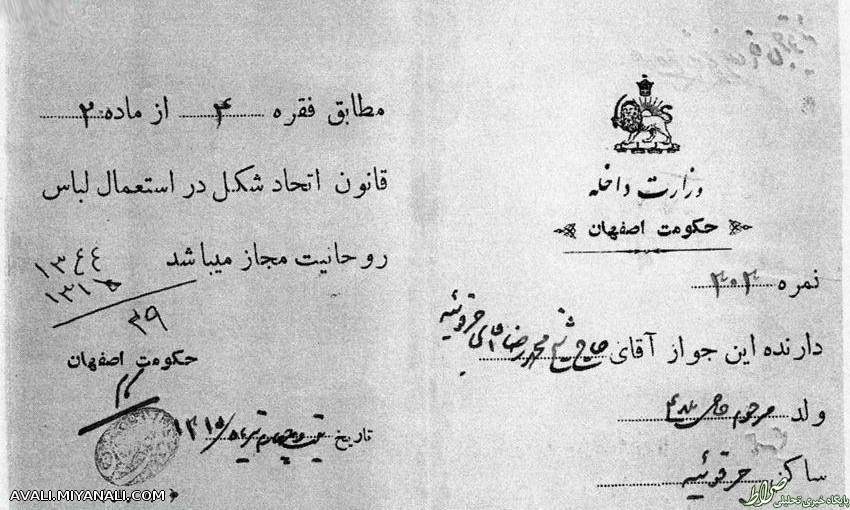 وزارت داخله
حکومت اصفهان
نمره ۳۰۲
دارنده این جواز آقای حاج شیخ محمدرضا آقای جرقوئیه
ولد مرحوم حاجی
ساکن جرقوئیه
مطابق فقره ۴ از ماده ۲
قانون اتحاد شکل در استعمال لباس
روحانیت مجاز میباشد
۱۳٤٤
۱۳۱۵
۲۹
حکومت اصفهان
تاریخ تیر ماه ۱۳۱۵
AVALI.MIYANALI.COM
صراط
پایگاه خبری تحلیلی